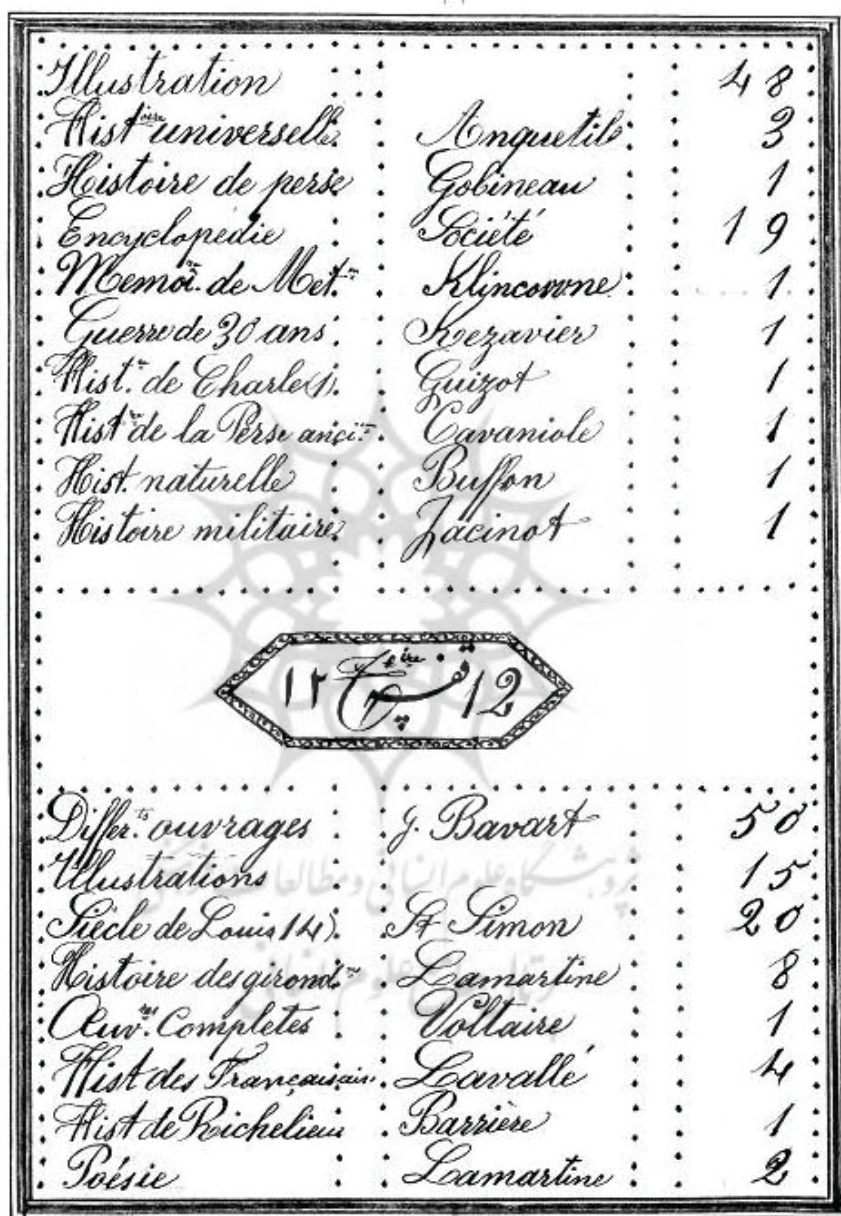 Illustration 48
Hist.oire universelle Anquetil 3
Histoire de perse Gobineau 1
Encyclopédie Société 19
Memoi. de Met. Klincowne 1
Guerre de 30 ans Kezavier 1
Hist.re de Charle(1). Guizot 1
Hist.re de la Perse anci. Cavaniole 1
Hist. naturelle Buffon 1
Histoire militaire Jacinot 1
12 قفسه ١٢
Differ.ts ouvrages J. Bavart 50
Illustrations 15
Siècle de Louis 14). St Simon 20
Histoire des girond. Lamartine 8
Œuv.res Completes Voltaire 1
Hist des Françaisais. Lavallé 4
Hist de Richelieu Barrière 1
Poésie Lamartine 2
پژوهشگاه علوم انسانی و مطالعات فرهنگی